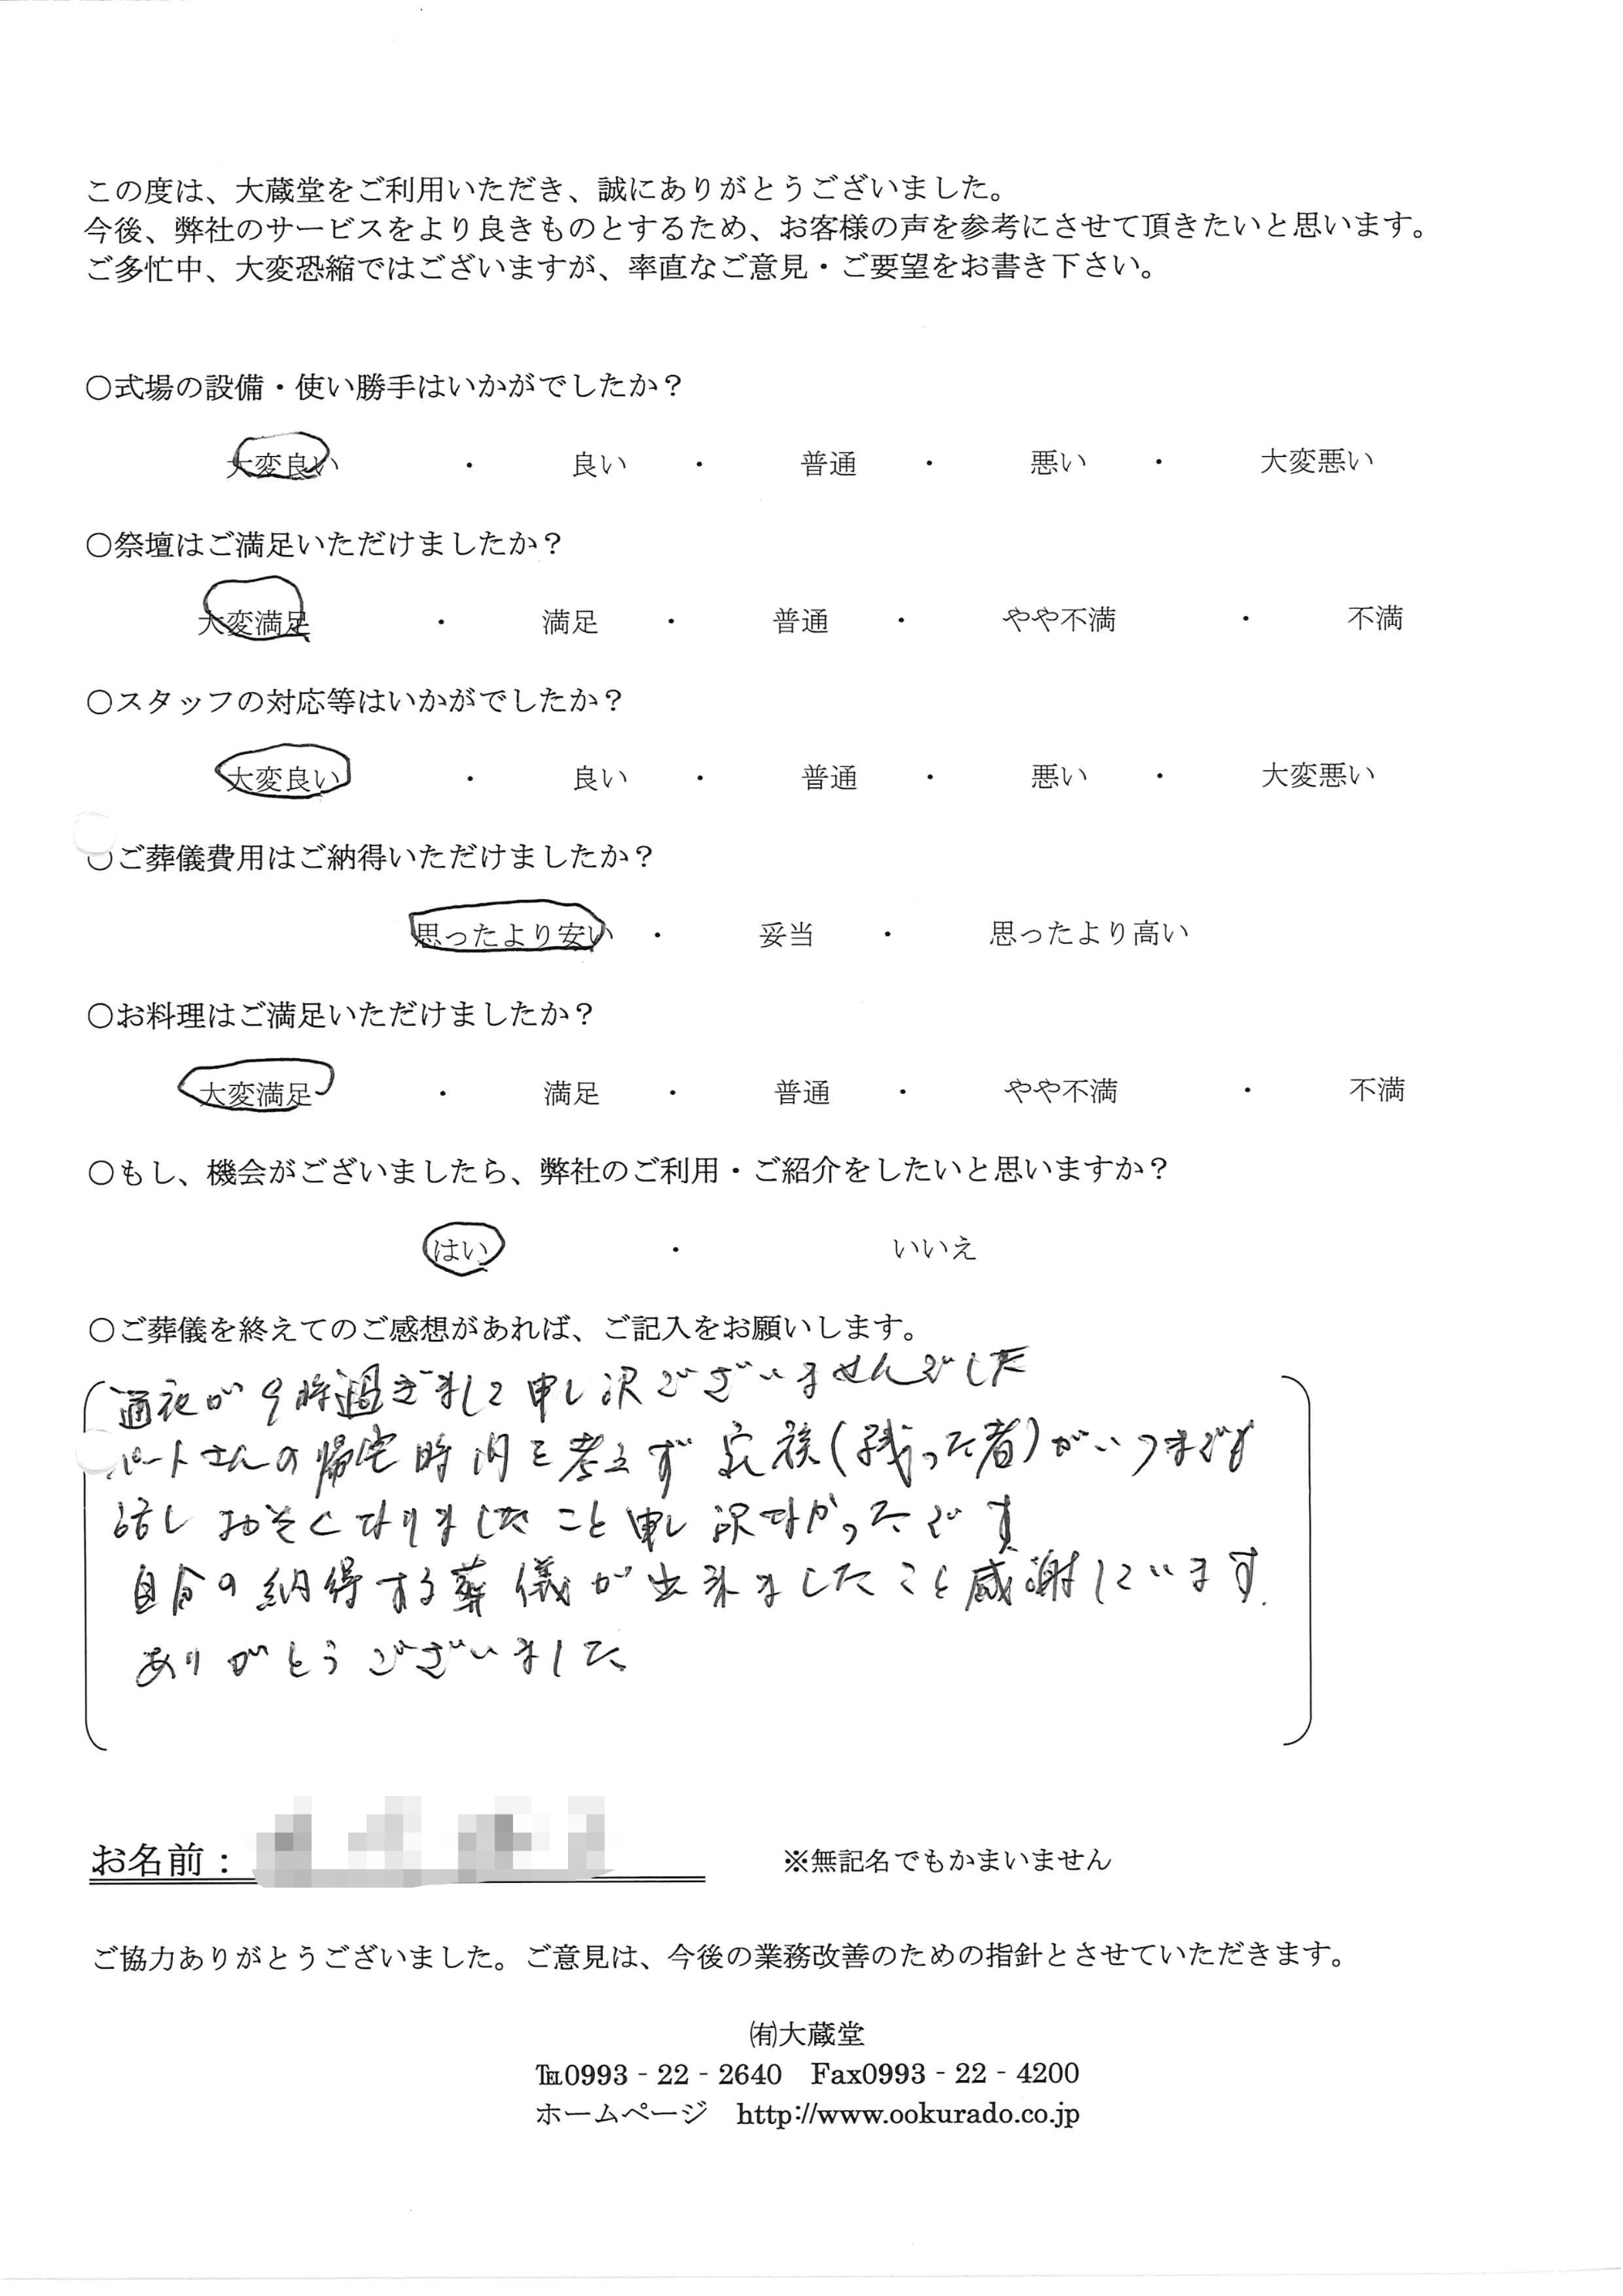 この度は、大蔵堂をご利用いただき、誠にありがとうございました。
今後、弊社のサービスをより良きものとするため、お客様の声を参考にさせて頂きたいと思います。
ご多忙中、大変恐縮ではございますが、率直なご意見・ご要望をお書き下さい。
○式場の設備・使い勝手はいかがでしたか？
大変良い ・ 良い ・ 普通 ・ 悪い ・ 大変悪い
○祭壇はご満足いただけましたか？
大変満足 ・ 満足 ・ 普通 ・ やや不満 ・ 不満
○スタッフの対応等はいかがでしたか？
大変良い ・ 良い ・ 普通 ・ 悪い ・ 大変悪い
○ご葬儀費用はご納得いただけましたか？
思ったより安い ・ 妥当 ・ 思ったより高い
○お料理はご満足いただけましたか？
大変満足 ・ 満足 ・ 普通 ・ やや不満 ・ 不満
○もし、機会がございましたら、弊社のご利用・ご紹介をしたいと思いますか？
はい ・ いいえ
○ご葬儀を終えてのご感想があれば、ご記入をお願いします。
通夜が9時過ぎまして申し訳ございませんでした
パートさんの帰宅時間を考えず 家族(残った者)がいつまでも
話しおそくなりましたこと申し訳なかったです
自分の納得する葬儀が出来ましたこと感謝しています.
ありがとうございました
お名前：
※無記名でもかまいません
ご協力ありがとうございました。ご意見は、今後の業務改善のための指針とさせていただきます。
㈲大蔵堂
℡0993‐22‐2640 Fax0993‐22‐4200
ホームページ http://www.ookurado.co.jp